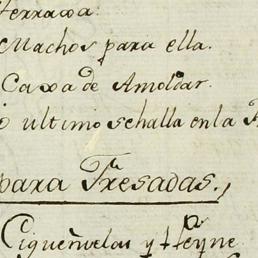 Terraxa.
Machos para ella.
Caxa de Amolar.
ultimo sehalla enla
para Fresadas.,
Cigueñuelas y